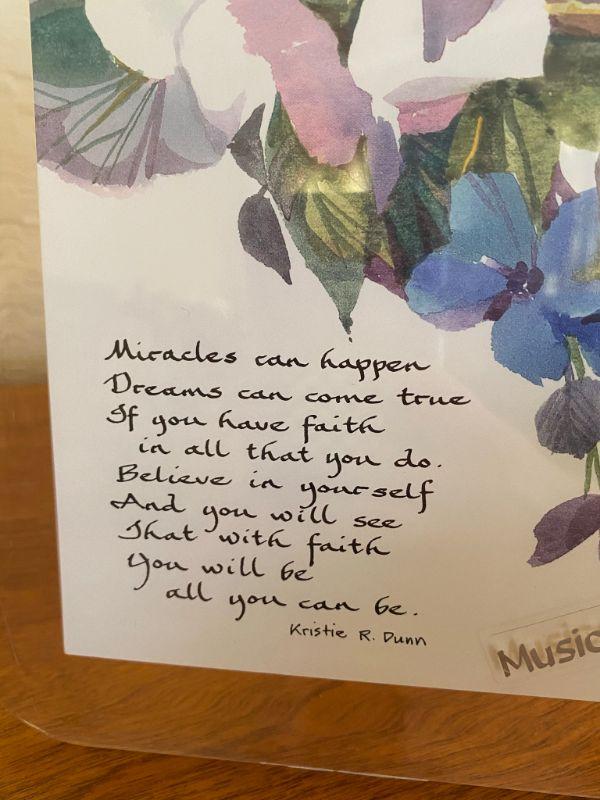 Miracles can happen
Dreams can come true
If you have faith
in all that you do.
Believe in yourself
And you will see
That with faith
You will be
all you can be.
Kristie R. Dunn
Music